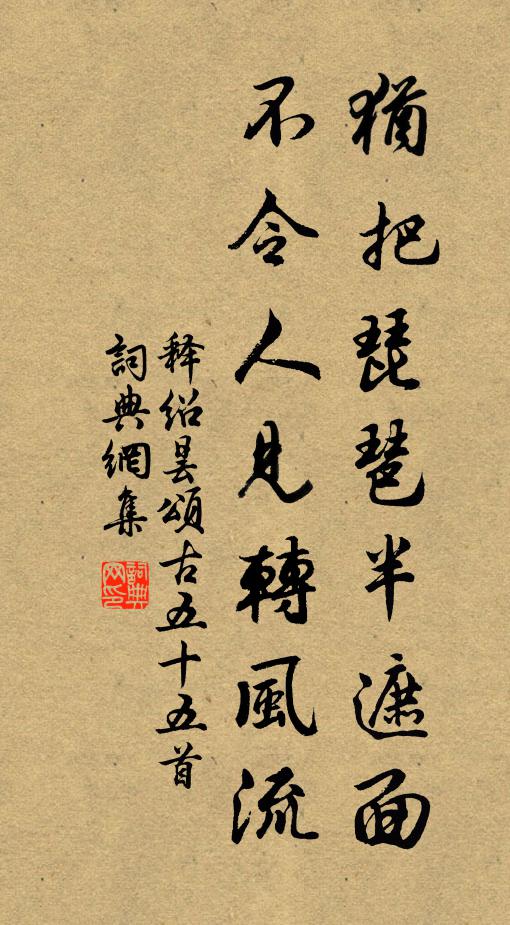 猶把琵琶半遮面
不令人見轉風流
釋紹曇頌古五十五首
詞典網集
詞典网印